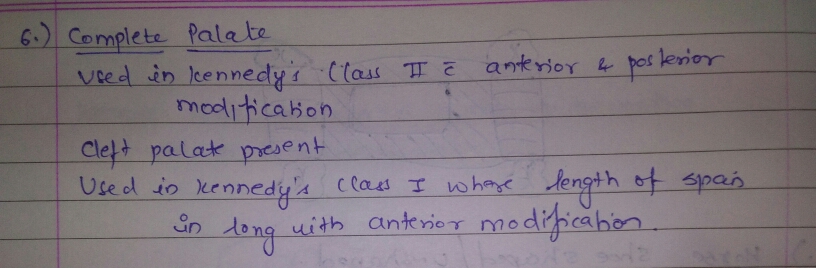 6.) Complete Palate
Used in Kennedy's Class II c̄ anterior & posterior
modification
Cleft palate present
Used in Kennedy's Class I where length of span
in long with anterior modification.